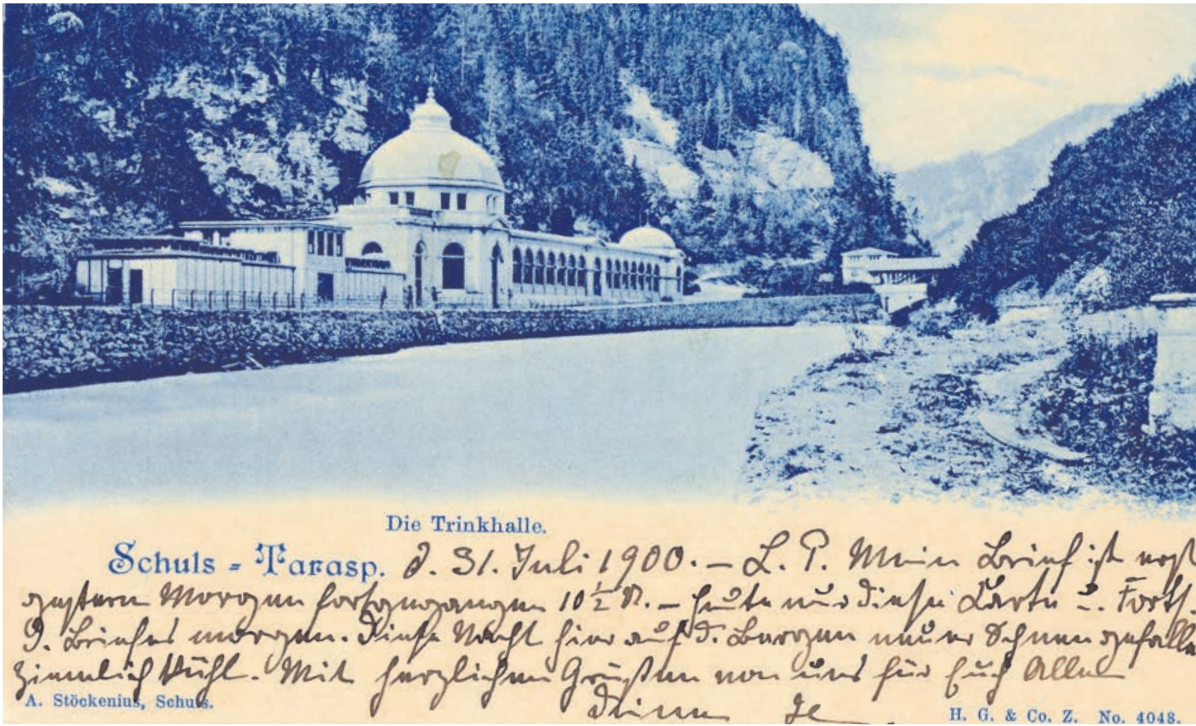 Die Trinkhalle.
Schuls = Tarasp. d. 31. Juli 1900. – L. P. Mein Brief ist erst
gestern Morgen fortgegangen 10 ½ U. – heute nur diese Karte u. Forts.
d. Briefes morgen. Diese Nacht hier auf d. Bergen neuer Schnee gefallen
ziemlich kühl. Mit herzlichen Grüßen von uns für Euch Alle
Deine
A. Stöckenius, Schuls.
H. G. & Co. Z. No. 4048.